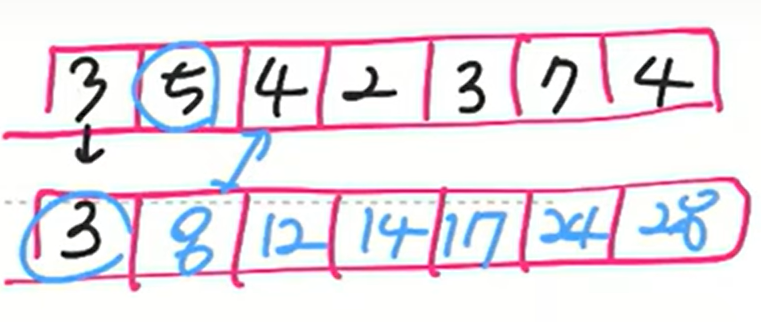 3 5 4 2 3 7 4
3 8 12 14 17 24 28